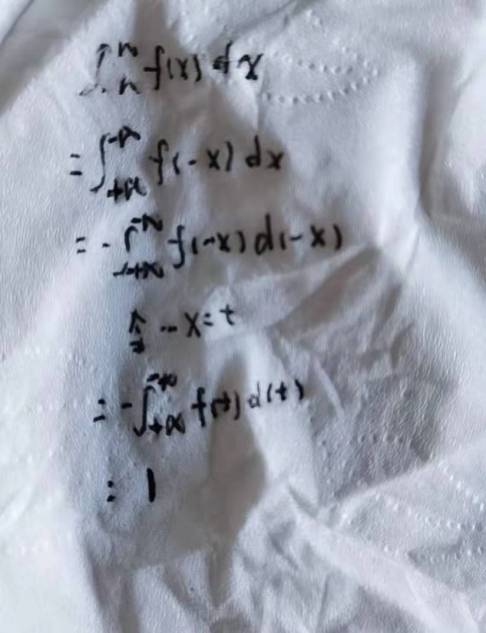 ∫ₙⁿ f(x) dx
= ∫_{+∞}^{-∞} f(-x) dx
= - ∫_{+∞}^{-∞} f(-x) d(-x)
令 -x=t
= -∫_{+∞}^{-∞} f(t) d(t)
= 1